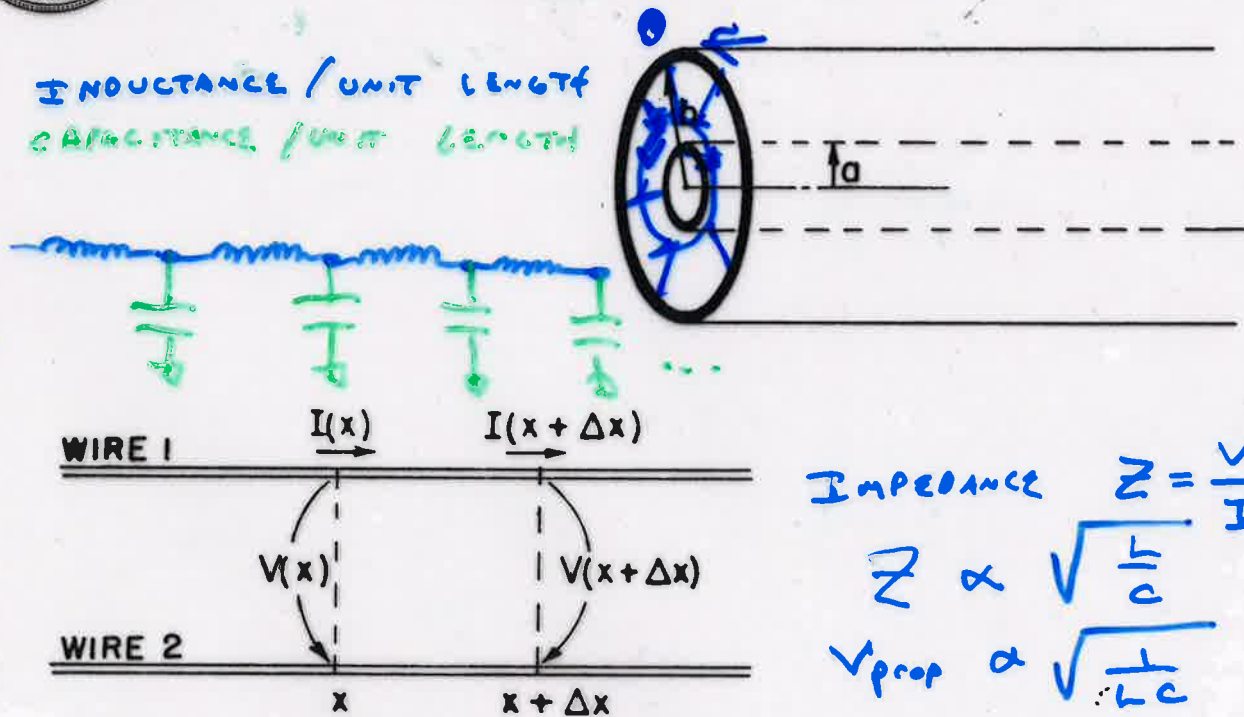 INDUCTANCE / UNIT LENGTH
CAPACITANCE / UNIT LENGTH
b
a
...
I(x)
I(x + Δx)
WIRE 1
V(x)
V(x + Δx)
WIRE 2
x
x + Δx
IMPEDANCE Z = V/I
Z ∝ √(L/C)
Vprop ∝ √(1/LC)